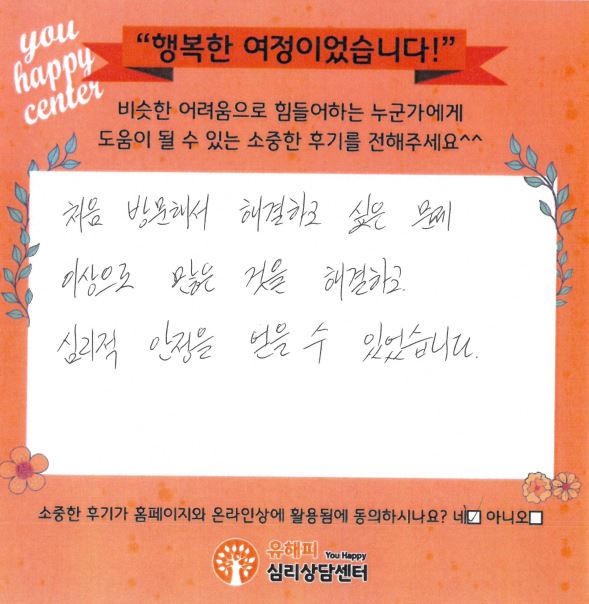 you
happy
center
“행복한 여정이었습니다!”
비슷한 어려움으로 힘들어하는 누군가에게
도움이 될 수 있는 소중한 후기를 전해주세요^^
처음 방문해서 해결하고 싶은 문제
이상으로 많은 것을 해결하고
심리적 안정을 얻을 수 있었습니다.
소중한 후기가 홈페이지와 온라인상에 활용됨에 동의하시나요? 네☑ 아니오☐
유해피 You Happy
심리상담센터